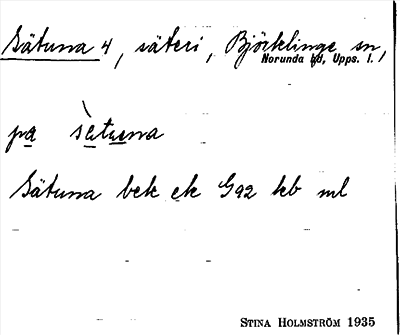 Sätuna 4, säteri, Björklinge sn,
Norunda hd, Upps. l.
pa sè̱tuena
Sätuna bek ek G92 kb ml
STINA HOLMSTRÖM 1935